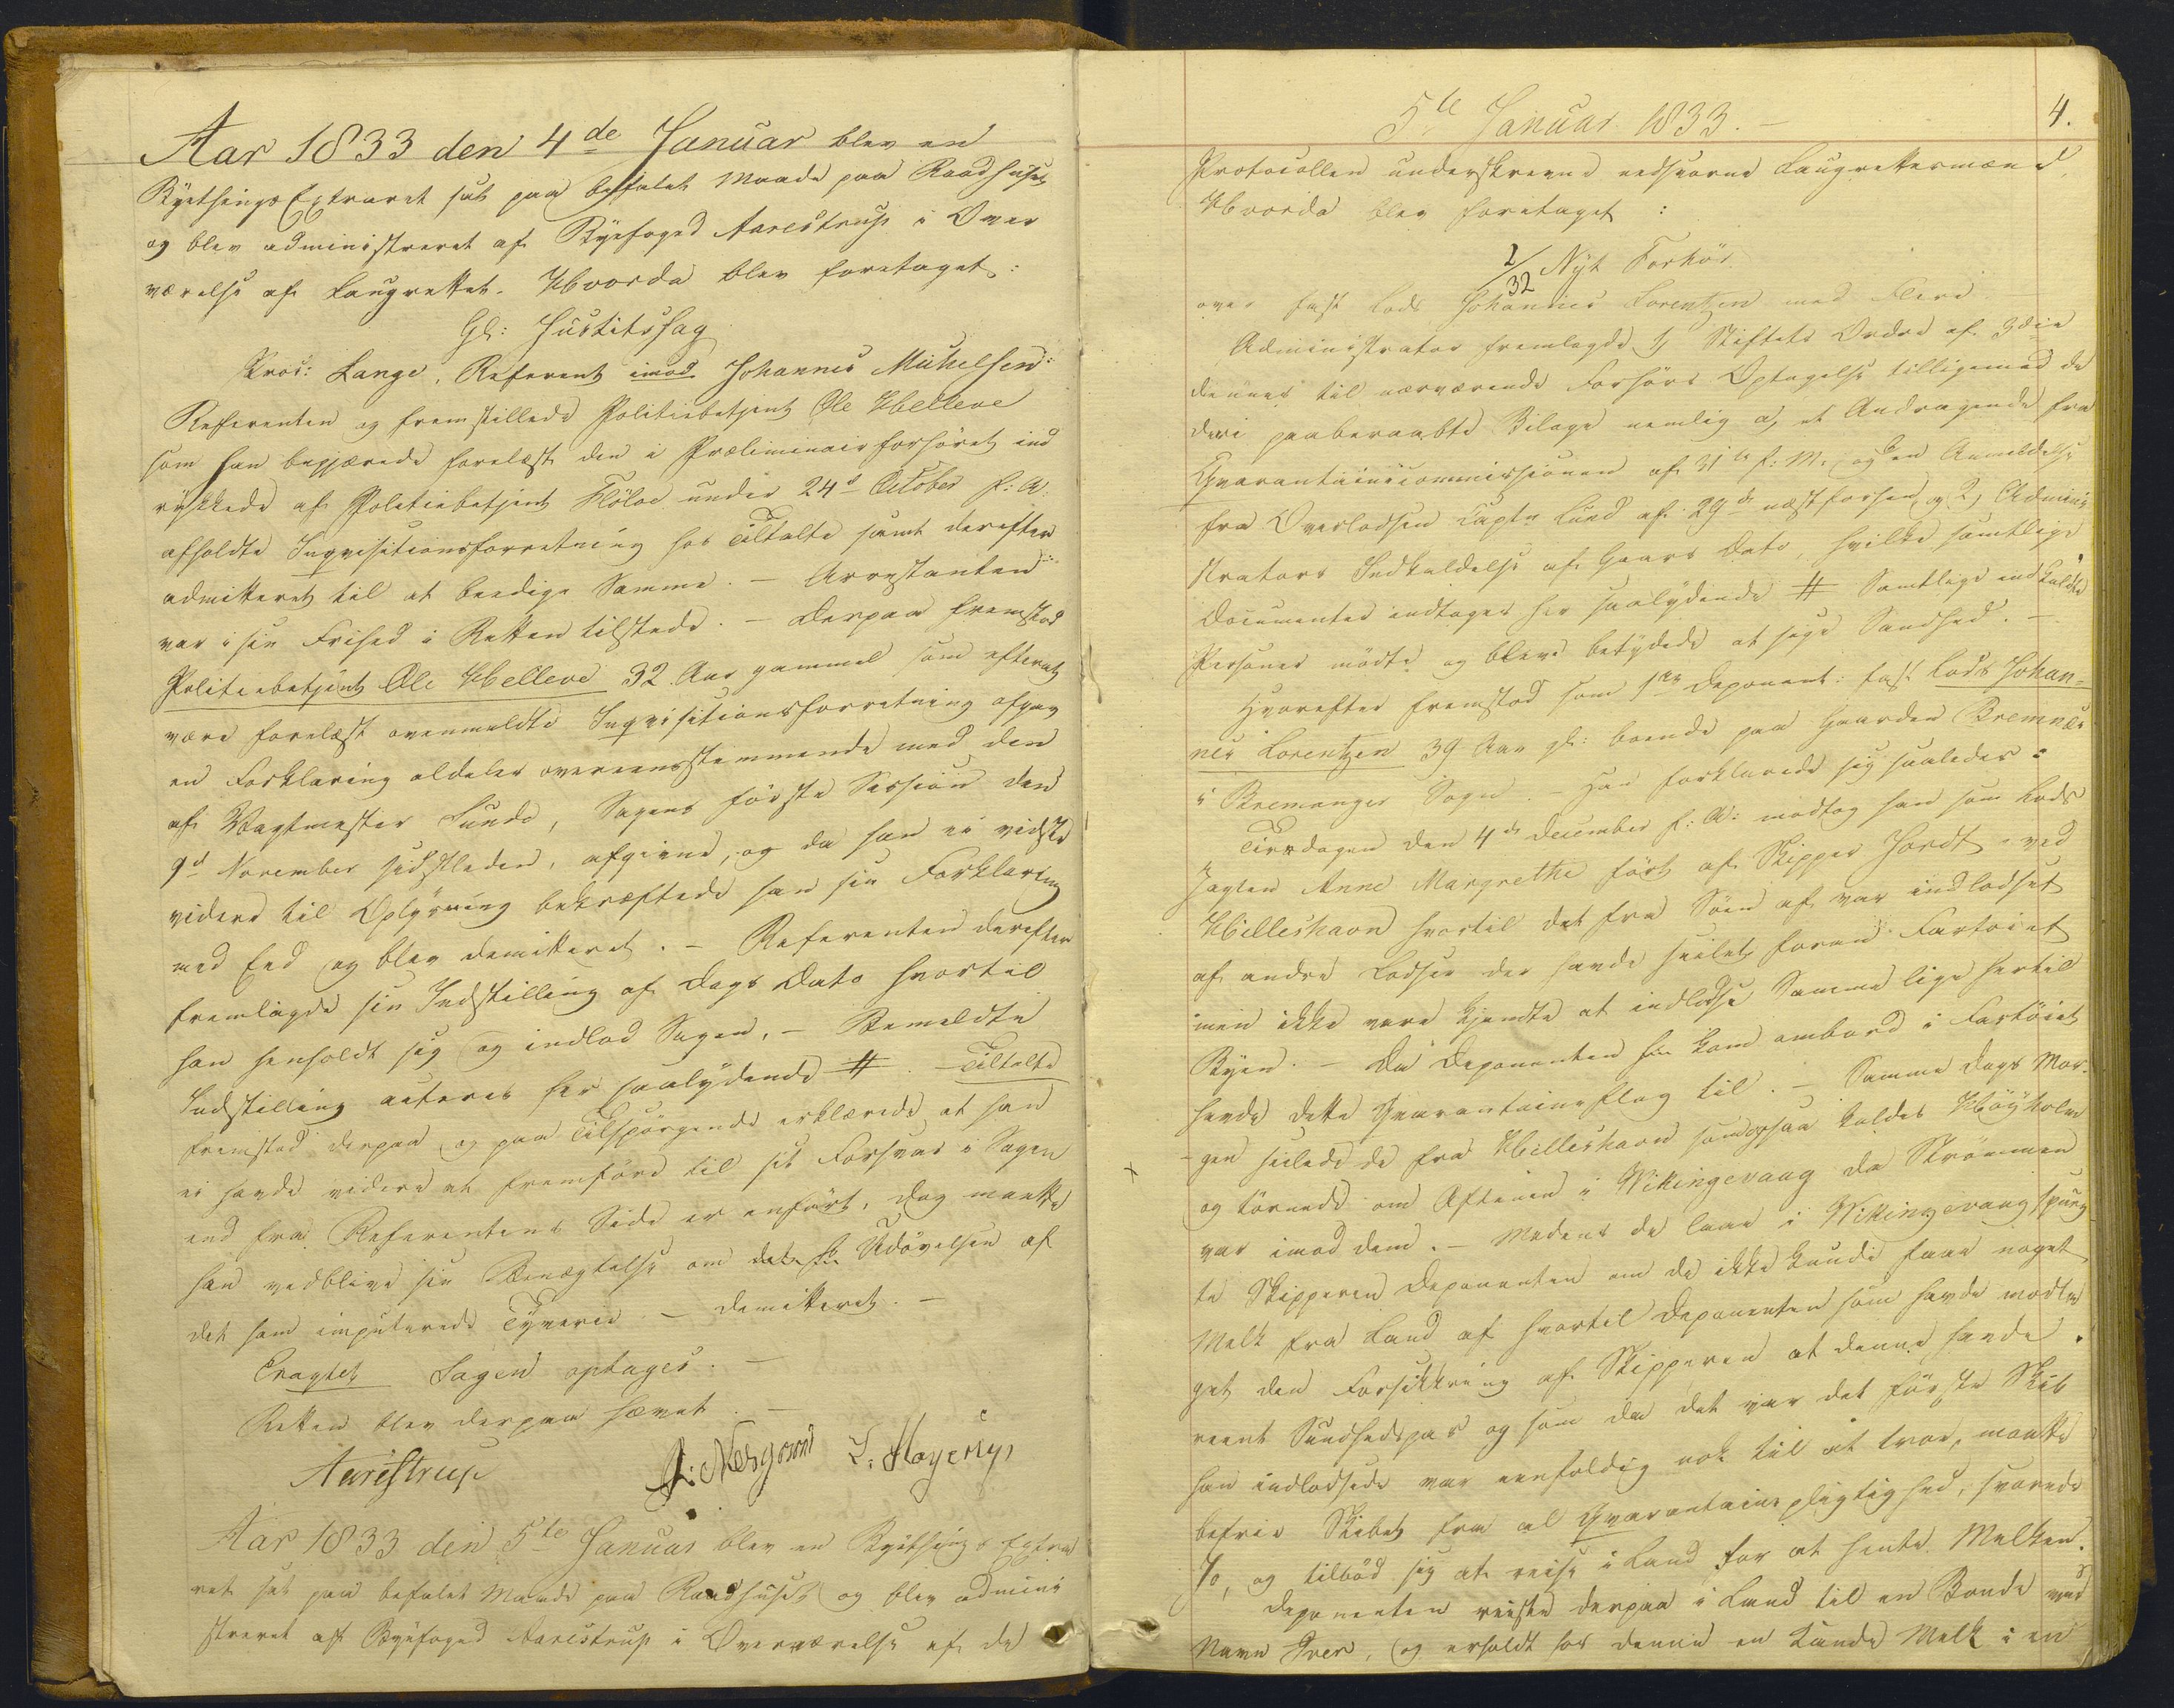 Aar 1833 den 4de Januar blev en
Byethings Extraret sat paa befalet Maade paa Raadhuset
og blev administreret af Byefoged Aarestrup i Over
værelse af Laugrettet. Hvorda blev foretaget:
Gl: Justitssag
Proc: Lange, Referent imod Johannes Michelsen:
Referenten og fremstillede Politiebetjent Ole Helleve
som han begjærede forelæst den i Præliminairforhöret ind
rykkede af Politiebetjent Flöloe under 24d October f: A:
afholdte Inqvisitionsforretning hos Tiltalte samt derefter
admitteret til at beedige Samme. – Arrestanten
var i sin Frihed i Retten tilstede. – Derpaa fremstod
Politiebetjent Ole Helleve 32 Aar gammel som efterat
være forelæst ovenmeldte Inqvisitionsforretning afgav
en Forklaring aldeles overeensstemmende med den
af Vagtmester Lunde, Sagens förste Session den
9d November sidstleden, afgivne, og da han ei vidste
videre til Oplysning bekræftede han sin Forklaring
med Eed og blev demitteret. – Referenten derefter
fremlagde sin Indstilling af Dags Dato hvortil
han henholdt sig og indlod Sagen. – Bemeldte
Indstilling acteres her saalydende #. – Tiltalte
fremstod derpaa og paa Tilspörgende erklærede at han
ei havde videre at fremföre til sit Forsvar i Sagen
end fra Referentens Side er anfört, dog maatte
han vedblive sin Benægtelse om Udövelsen af
det ham imputerede Tyverie. – Demitteret. –
Eragtet Sagen optages. –
Retten blev derpaa hævet. –
Aarestrup
Aar 1833 den 5te Januar blev en Byethings Extra
ret sat paa befalet Maade paa Raadhuset og blev admini
streret af Byefoged Aarestrup i Overværelse af de
5te Januar 1833. –
4.
Protocollen underskrevne eedsvorne Laugrettesmænd.
Hvorda blev foretaget:
1/32 Nyt Forhör
over fast Lods Johannes Lorentzen med Flere
Administrator fremlagde 1, Stiftets Ordre af 3die
dennes til nærværende Forhörs Optagelse tilligemed de
deri paaberaabte Bilage nemlig a, et Andragende fra
Qvarantainecommissionen af 31te f: M: og en Anmeldelse
fra Overlodsen Captn Lund af 29de næstforhen og 2, Admini
strators Indkaldelse af Gaars Dato, hvilke samtlige
Documenter indtages her saalydende # Samtlige indkaldte
Personer mödte og bleve betydede at sige Sandhed. –
Hvorefter fremstod som 1ste Deponent: fast Lods Johan=
nes Lorentzen 39 Aar gl: boende paa Gaarden Bremnæs
i Bremanger Sogn. – Han forklarede sig saaledes:
Tirsdagen den 4de December f: A: modtog han som Lods
Jagten Anne Margrethe fört af Skipper Hordt ved
Hilleshavn hvortil det fra Söen af var indlodset
af andre Lodser der havde seilet foran Fartöiet
men ikke vare kjendte at indlodse Samme lige hertil
Byen. – Da Deponenten kom ombord i Fartöiet
havde dette Qvarantaineflag til. – Samme Dags Mor-
gen seilede de fra Hilleshavn som ogsaa kaldes Höyholm
og törnede om Aftenen i Vikingevaag da Strömmen
var imod dem. – Medens de laae i Vikingevaag spurg-
te Skipperen Deponenten om de ikke kunde faae noget
Melk fra Land af hvortil Deponenten som havde modta
get den Forsikkring af Skipperen at denne havde
reent Sundhedspas og som da det var det förste Skib
han indlodsede var eenfoldig nok til at troe, maatte
befrie Skibet fra al Qvarantainepligtighed, svarede
Jo, og tilböd sig at reise i Land for at hente Melken.
Deponenten reiste derpaa i Land til en Bonde ved
Navn Iver, og erholdt hos denne en Kande Melk i en